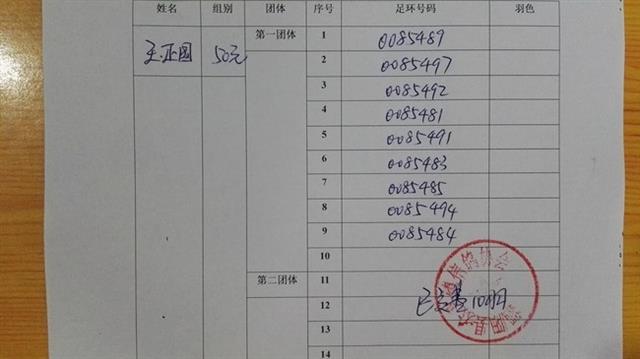 姓名 组别 团体 序号 足环号码 羽色
王正国 50元 第一团体 1 0085489
2 0085497
3 0085492
4 0085481
5 0085491
6 0085483
7 0085485
8 0085494
9 0085484
10
第二团体 11
12
13
14
信鸽协会